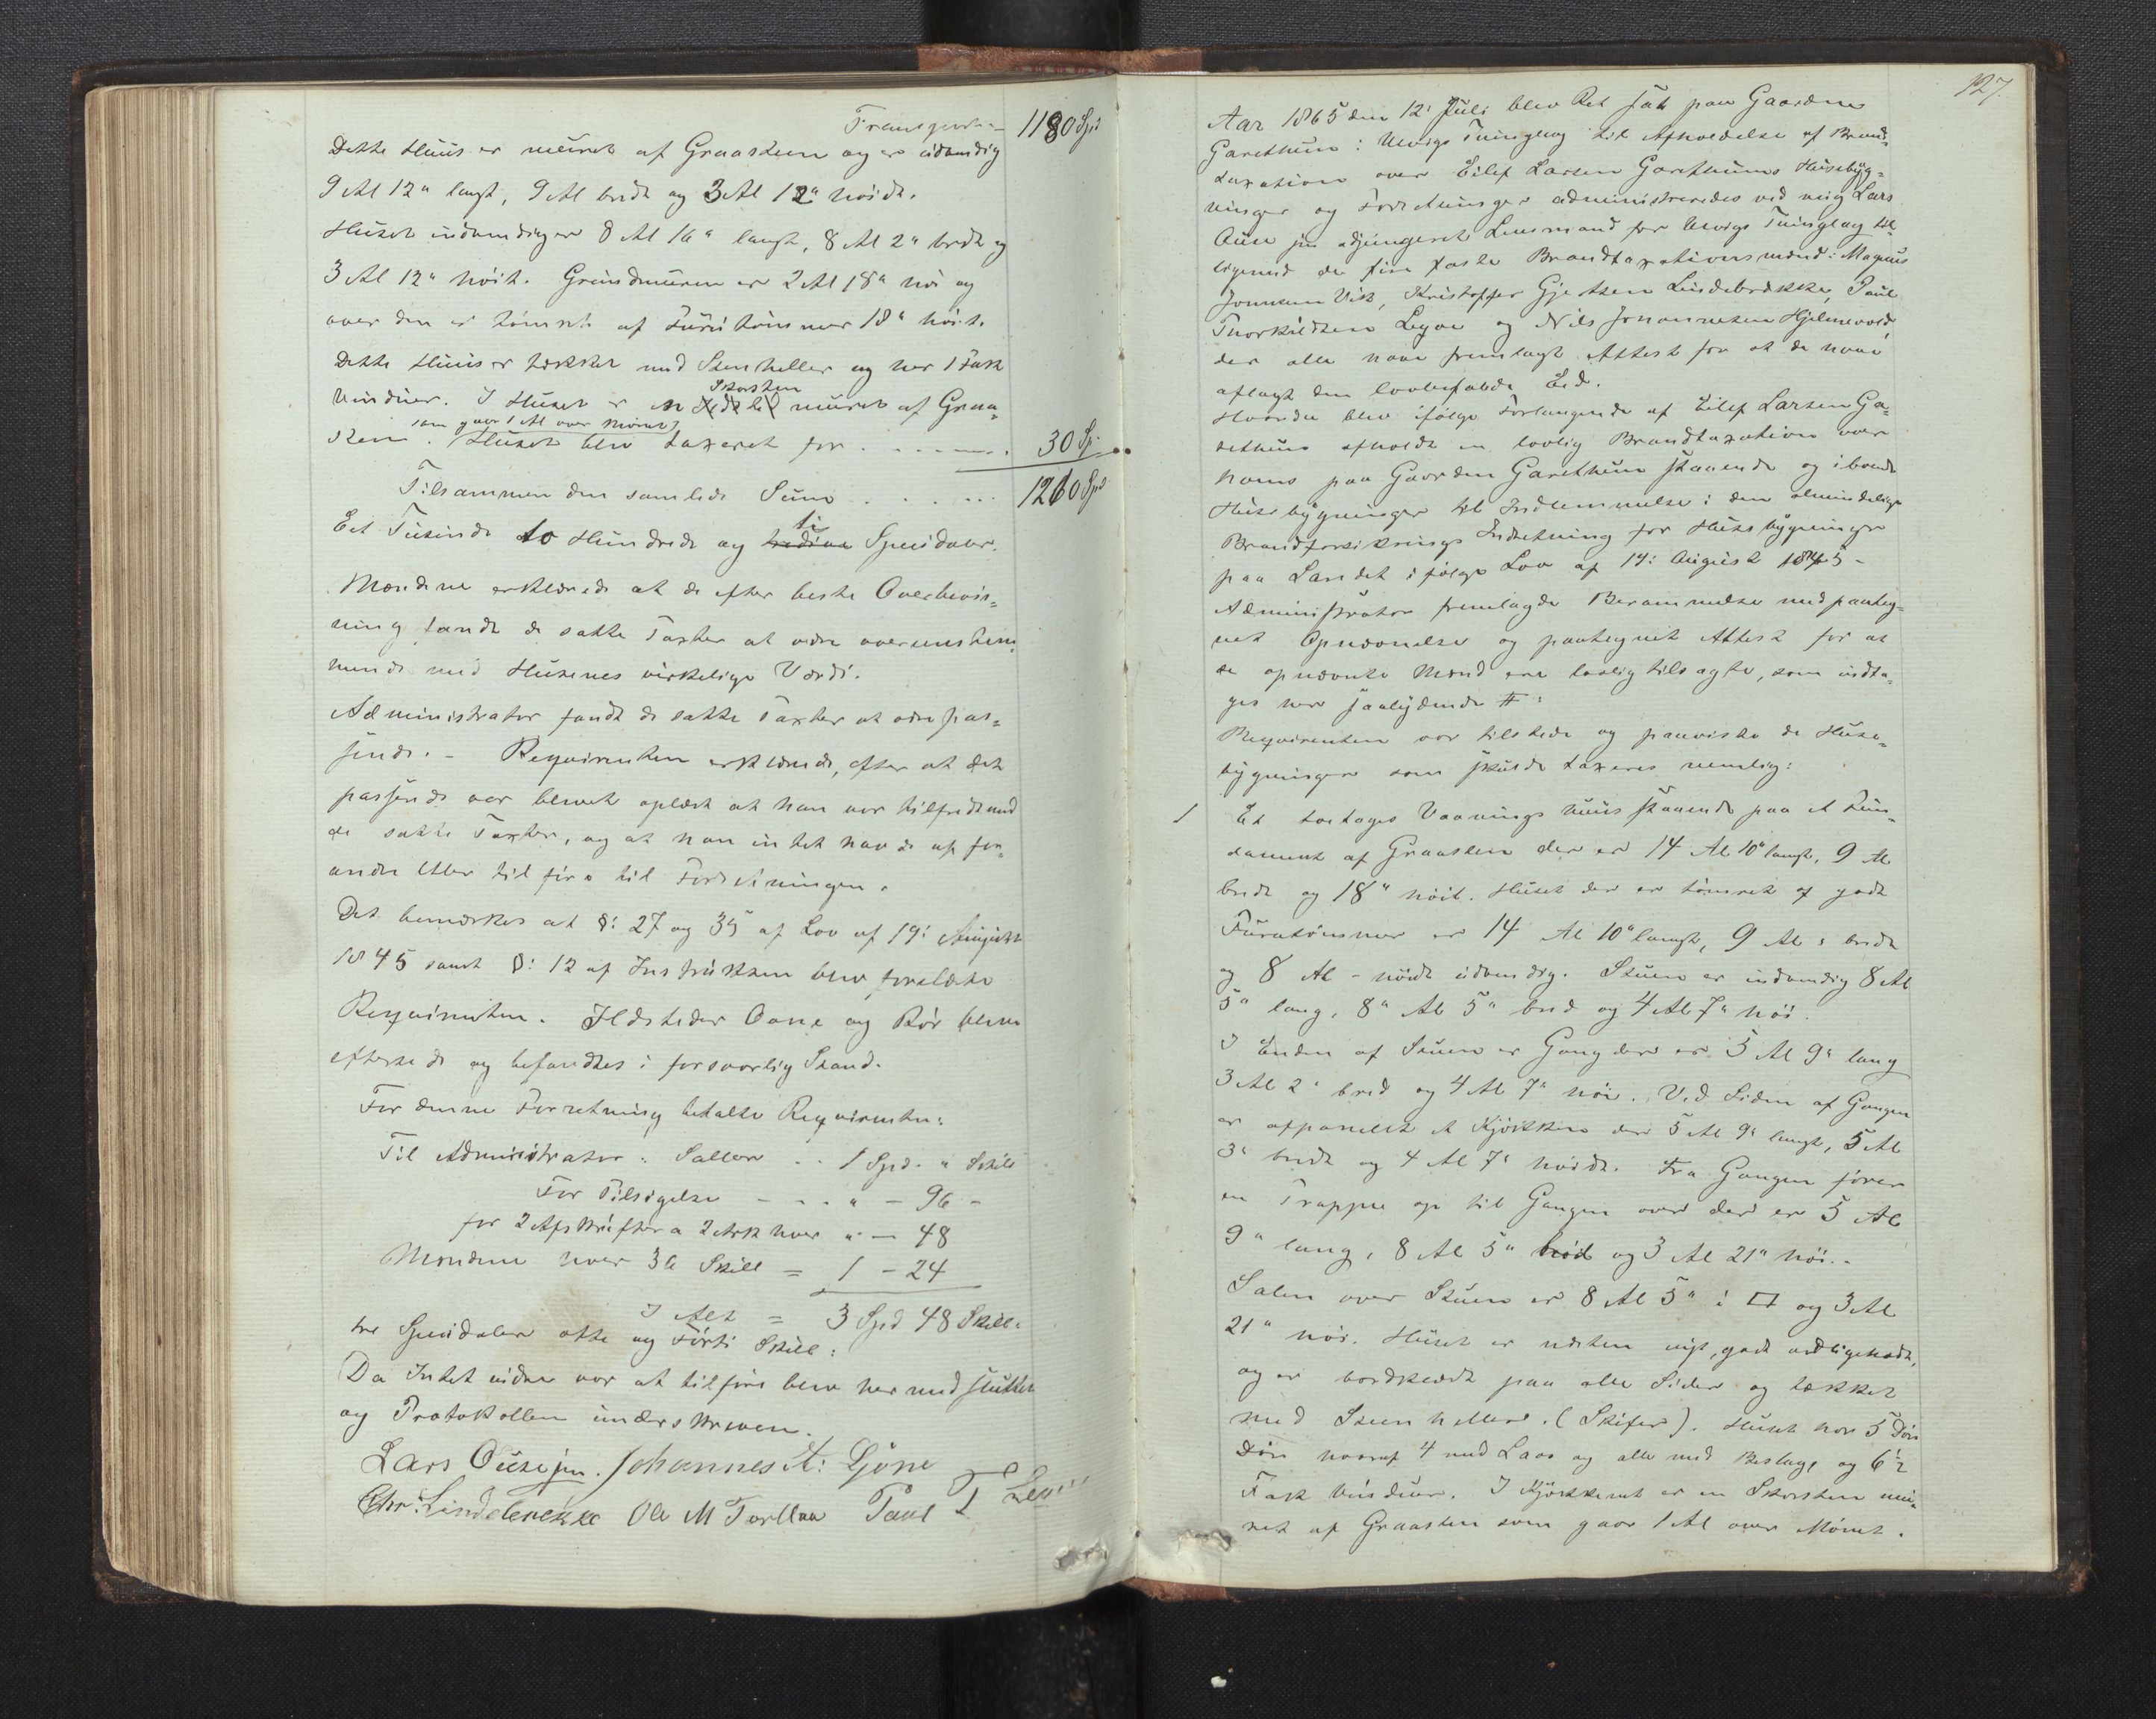 Transporteres 1180 Spd
Dette Huus er muret af Graasteen og er udvendig
9 Al 12" langt, 9 Al bredt og 3 Al 12" höidt.
Huset indvendig er 8 Al 16" langt, 8 Al 2" bredt og
3 Al 12" höit. Grundmuren er 2 Al 18" höi og
over den er tömret af Furutömmer 18" höit.
Dette Huus er tækket med Steenheller og har 1 Fak
Vinduer. I Huset er en Skorsten muret af Graa-
sten. som gaar 1 Al over Mönet) Huset blev taxeret for . . . . . 30 Sp
Tilsammen den samlede Sum . . . . . 1210 Spd
Eet Tusinde to Hundrede og ti Specidaler.
Mændene erklærede at de efter beste Overbeviis-
ning fandt de satte Taxter at være overeenstem-
mende med Husenes virkelige Værdi.
Administrator fandt de satte Taxter at være pas-
sende. - Requirenten erklærede, efter at det
passerede var blevet oplæst at han var tilfreds med
de satte Taxter, og at han intet havde at for-
andre eller tilföre til Forretningen.
Det bemærkes at §: 27 og 35 af Lov af 19: August
1845 samt §: 12 af Instruksen blev forelæste
Requirenten. Ildsteder Ovne og Rör bleve
efterseede og befandtes i forsvarlig Stand.
For denne Forretning betalte Requirenten:
Til Administrator: Sallær . . 1 Spd. " Skill
For Tilsigelse - - - " - 96 -
for 2 Afskrifter a 2 Ark hver " - 48
Mændene hver 36 Skill = 1 - 24
I Alt = 3 Spd 48 Skill:
tre Speidaler otte og Förti Skill:
Da Intet videre var at tilföre blev hermed sluttet
og Protokollen underskreven.
Lars Ouse jun. Johannes A: Ljöne
Chr: Lindebrekke Ole M Torblaa Paul T
127.
Aar 1865 den 12: Juli blev Ret sat paa Gaarden
Garethun i Ulvigs Tinglag til Afholdelse af Brand-
taxation over Eilef Larsen Garethuns Husebyg-
ninger og Forretningen administreredes ved mig Lars
Ouse jun adjungeret Lensmand for Ulvigs Tinglag til-
ligemed de fire faste Brandtaxationsmænd: Magnus
Johnsen Vik, Kristoffer Gjertsen Lindebrække, Paul
Thorkildsen Legve og Nils Johannesen Hjelmevold,
der alle have fremlagt Attest for at de have
aflagt den lovbefalede Eed.
Hvorda blev ifölge Forlangende af Eilef Larsen Ga-
rethun afholdt en lovlig Brandtaxation over
hans paa Gaarden Garethun staaende og iboende
Husebygninger til Indlemmelse i den almindelige
Brandforsikrings Indretning for Husebygninger
paa Landet ifölge Lov af 19: August 1845 -
Administrator fremlagde Berammelse med paateg-
net Opnævnelse og paategnet Attest for at
de opnævnte Mænd ere lovlig tilsagte, som indta-
ges her saalydende #:
Requirenten var tilstede og paaviste de Huse-
bygninger som skulde taxeres nemlig:
1 Et toetages Vaaningshuus staaende paa et Fun-
dament af Graasten der er 14 Al 10" langt, 9 Al
bredt og 18" höit. Huset der er tömret af godt
Furutömmer er 14 Al 10" langt, 9 Al : bredt
og 8 Al - höidt udvendig. Stuen er indvendig 8 Al
5" lang, 8" Al 5" bred og 4 Al 7" höi.
I Enden af Stuen er Gang der er 5 Al 9" lang
3 Al 2" bred og 4 Al 7" höi. Ved Siden af Gangen
er afpanelet et Kjökken der 5 Al 9" langt, 5 Al
3" bredt og 4 Al 7" höidt. Fra Gangen förer
en Trappe op til Gangen over der er 5 Al
9" lang, 8 Al 5" bred og 3 Al 21" höi. -
Salen over Stuen er 8 Al 5" i □ og 3 Al
21" höi. Huset er næsten nyt, godt vedligeholdt,
og er bordklædt paa alle Sider og tækket
med Steenheller. (Skifer). Huset har 5 Döre
Döre hvoraf 4 med Laas og alle med Beslag, og 6 1/2
Fak Vinduer. I Kjökkenet er en Skorsten mu-
ret af Graasten som gaar 1 Al over Mönet.